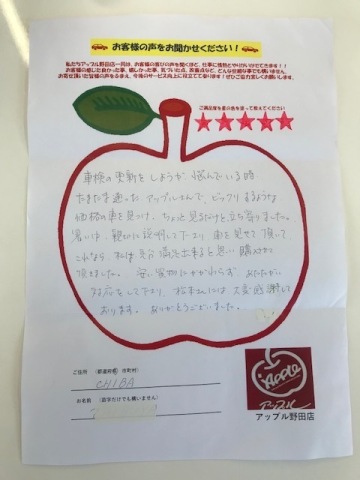 お客様の声をお聞かせください！
私たちアップル野田店一同は、お客様の喜びの声を聞くほど、仕事に情熱とやりがいがでてきます！！
お客様の感じた良かった事、嬉しかった事、気づいた点、改善点など、どんな些細な事でも構いません。
お寄せ頂いた皆様の声をふまえ、今後のサービス向上に役立てて参ります！ぜひご協力宜しくお願いします。
ご満足度を星の色を塗って教えてください
車検の更新をしようか悩んでいる時
たまたま通った アップルさんで、ビックリするような
価格の車を見つけ、ちょっと見るだけと立ち寄りました。
暑い中、親切に説明して下さり 車を見せて頂いて
これなら、私は充分満足出来ると思い 購入させて
頂きました。 安い買物にかかわらず、あたたかい
対応をして下さり、松本さんには 大変感謝して
おります。 ありがとうございました。
ご住所 （都道府県 市町村）
CHIBA
お名前 （苗字だけでも構いません）
Apple
アップル
アップル野田店